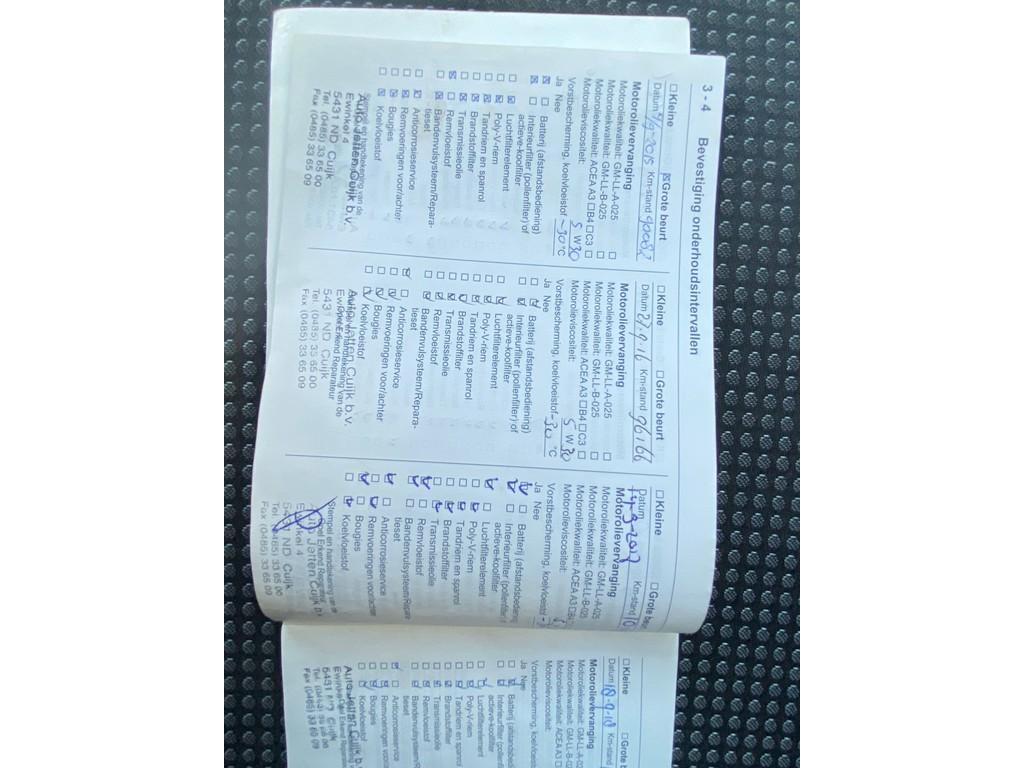 3 - 4 Bevestiging onderhoudsintervallen
☐ Kleine ☒ Grote beurt
Datum Km-stand 90082
Motorolievervanging
Motoroliekwaliteit: GM-LL-A-025 ☐
Motoroliekwaliteit: GM-LL-B-025 ☐
Motoroliekwaliteit: ACEA A3 ☐ B4 ☐ C3 ☐
Motorolieviscositeit: 5 W 30
Vorstbescherming, koelvloeistof -30 °C
Ja Nee
☒ ☐ Batterij (afstandsbediening)
☒ ☐ Interieurfilter (pollenfilter) of
actieve-koolfilter
☐ ☒ Luchtfilterelement
☐ ☒ Poly-V-riem
☐ ☒ Tandriem en spanrol
☐ ☒ Brandstoffilter
☐ ☒ Transmissieolie
☒ ☐ Remvloeistof
☐ ☒ Bandenvulsysteem/Repara-
tieset
☐ ☒ Anticorrosieservice
☐ ☒ Remvoeringen voor/achter
☐ ☒ Bougies
☐ ☒ Koelvloeistof
Stempel en handtekening van de
Auto Jetten Cuijk b.v.
Ewinkel 4
5431 ND Cuijk
Tel. (0485) 33 65 00
Fax (0485) 33 65 09
☐ Kleine ☐ Grote beurt
Datum 27-9-16 Km-stand 96166
Motorolievervanging
Motoroliekwaliteit: GM-LL-A-025 ☐
Motoroliekwaliteit: GM-LL-B-025 ☐
Motoroliekwaliteit: ACEA A3 ☐ B4 ☐ C3 ☐
Motorolieviscositeit: 5 W 30
Vorstbescherming, koelvloeistof -30 °C
Ja Nee
Batterij (afstandsbediening)
Interieurfilter (pollenfilter) of
actieve-koolfilter
Luchtfilterelement
Poly-V-riem
Tandriem en spanrol
Brandstoffilter
Transmissieolie
Remvloeistof
Bandenvulsysteem/Repara-
tieset
Anticorrosieservice
Remvoeringen voor/achter
Bougies
Koelvloeistof
Stempel en handtekening van de
Opel Erkend Reparateur
Auto Jetten Cuijk b.v.
Ewinkel 4
5431 ND Cuijk
Tel. (0485) 33 65 00
Fax (0485) 33 65 09
☐ Kleine ☐ Grote beu
Datum Km-stand
Motorolievervanging
Motoroliekwaliteit: GM-LL-A-025
Motoroliekwaliteit: GM-LL-B-025
Motoroliekwaliteit: ACEA A3 ☐ B4
Motorolieviscositeit:
Vorstbescherming, koelvloeistof
Ja Nee
Batterij (afstandsbediening
Interieurfilter (pollenfilter) of
actieve-koolfilter
Luchtfilterelement
Poly-V-riem
Tandriem en spanrol
Brandstoffilter
Transmissieolie
Remvloeistof
Bandenvulsysteem/Repara
tieset
Anticorrosieservice
Remvoeringen voor/achter
Bougies
Koelvloeistof
Stempel en handtekening van de
Opel Erkend Reparateur
Jetten Cuijk b.v.
5431 ND Cuijk
Tel. (0485) 33 65 00
Fax (0485) 33 65 09
☐ Kleine ☐ Grote b
Datum 18-9-18 Km-stand
Motorolievervanging
Motoroliekwaliteit: GM-LL-A-02
Motoroliekwaliteit: GM-LL-B-02
Motoroliekwaliteit: ACEA A3
Motorolieviscositeit:
Vorstbescherming, koelvloeis
Ja Nee
Batterij (afstandsbed
Interieurfilter (pollenfi
actieve-koolfilter
Luchtfilterelement
Poly-V-riem
Tandriem en spanrol
Brandstoffilter
Transmissieolie
Remvloeistof
Bandenvulsysteem/R
tieset
Anticorrosieservice
Remvoeringen voor/
Bougies
Koelvloeistof
Auto Jetten Cuijk b.
5431 ND Cuijk
Fax (0485) 33 65 09